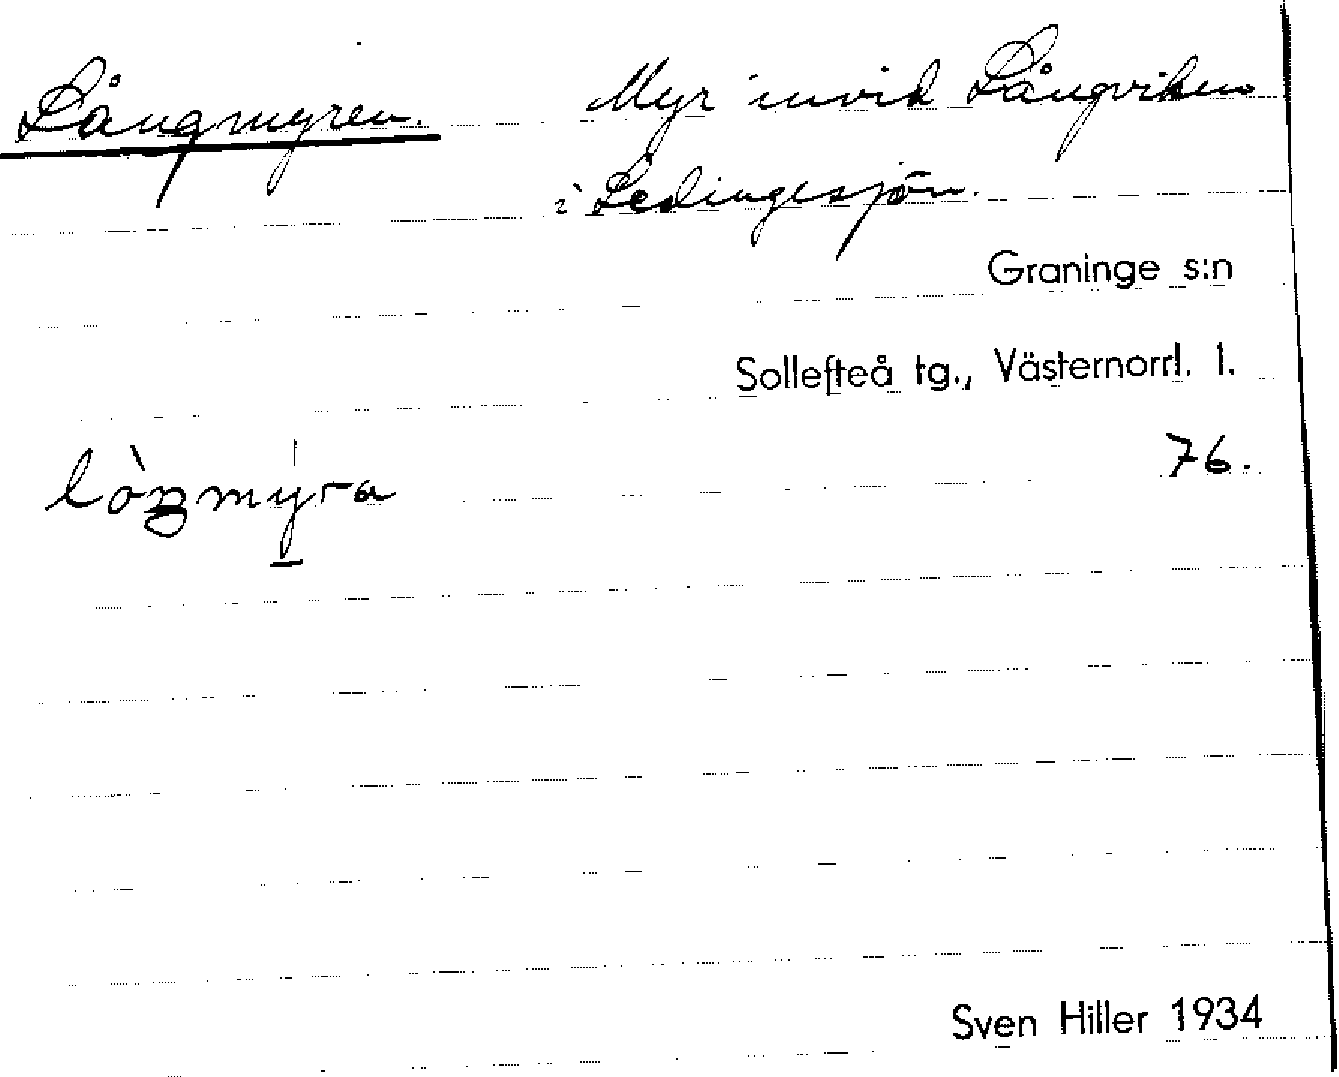 Långmyren. Myr invid Långviken
i Ledingesjön.
Graninge s:n
Sollefteå tg., Västernorrl. l.
76.
Sven Hiller 1934